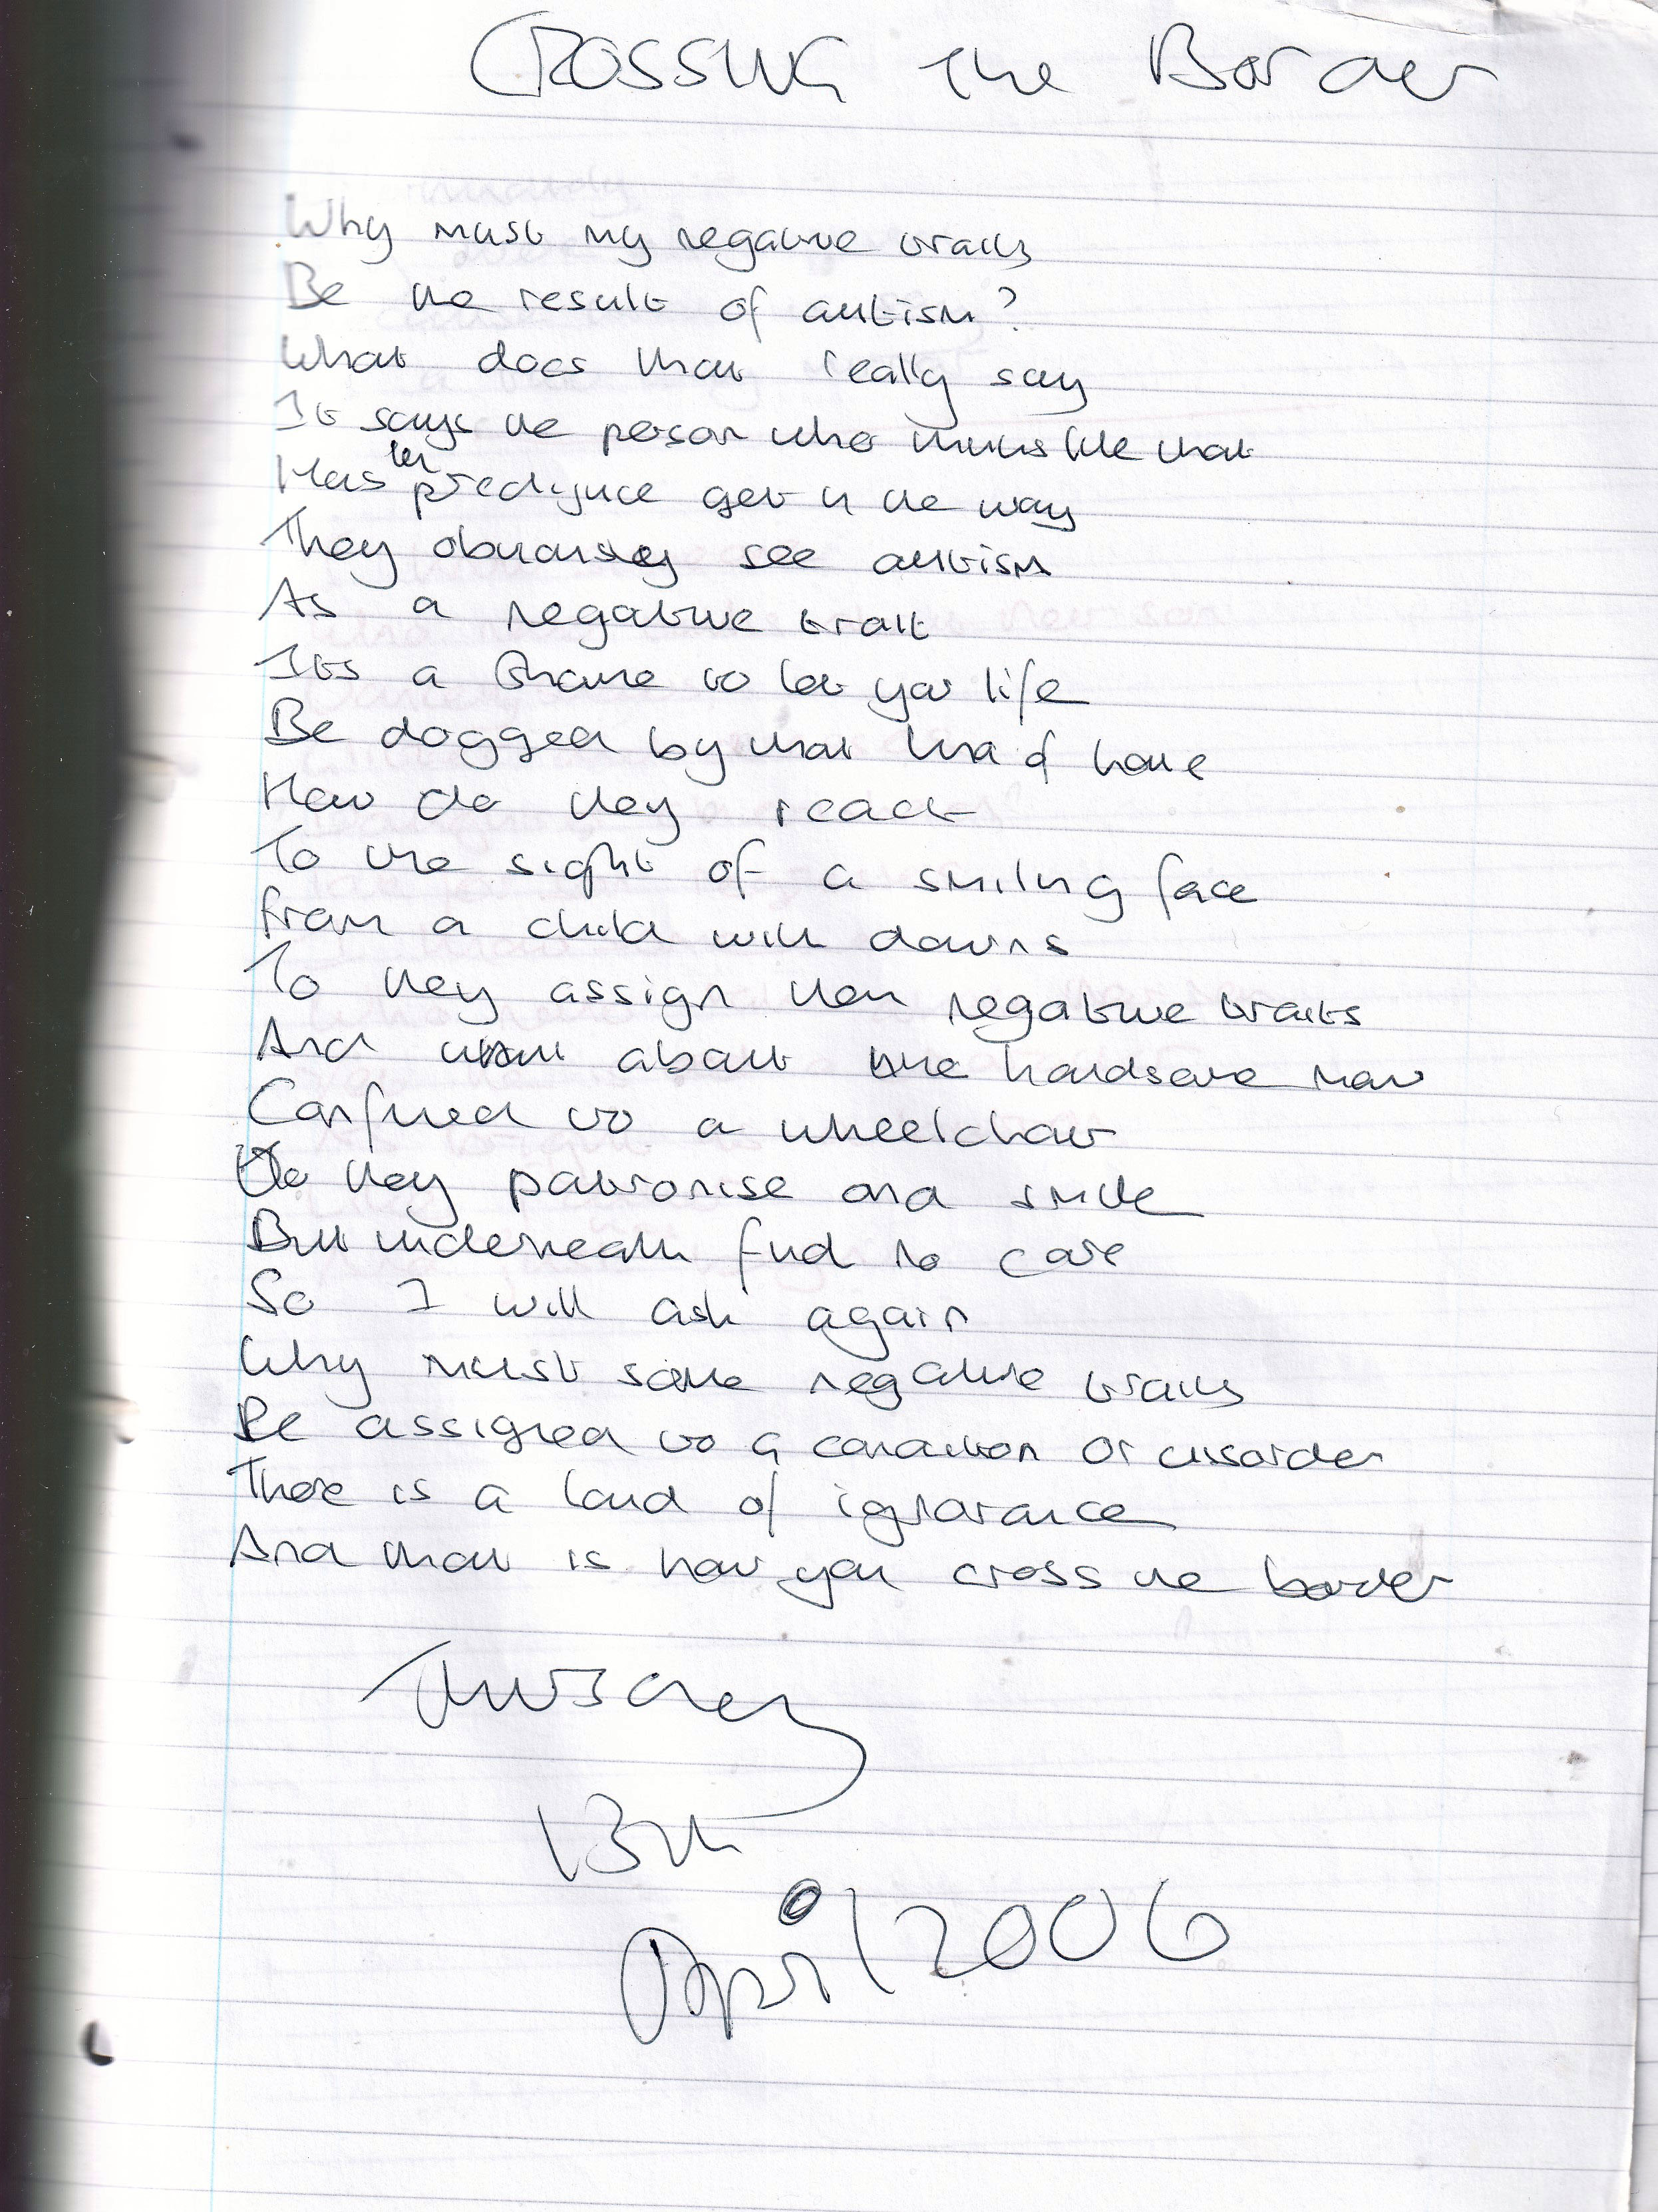 CROSSING The Border
Why must my negative traits
Be the result of autism?
What does that really say
It says the person who thinks like that
Has let predijuce get in the way
They obviously see autism
As a negative trait
Its a shame to let your life
Be dogged by that kind of hate
How do they react
To the sight of a smiling face
from a child with downs
To they assign them negative traits
And what about the handsome man
Confined to a wheelchair
Do they patronise and smile
But underneath find no care
So I will ask again
Why must some negative traits
Be assigned to a condition or disorder
There is a land of ignorance
And that is how you cross the border
Thursday
13th
April 2006